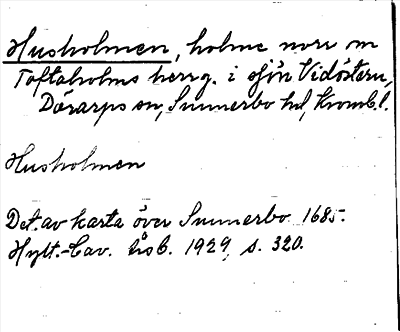 Husholmen, holme norr om
Toftaholms herrg. i sjön Vidöstern,
Dörarps sn, Sunnerbo hd, Kronob. l.
Husholmen
Det. av karta över Sunnerbo 1685.
Hylt.-Cav. årsb. 1929, s. 320.